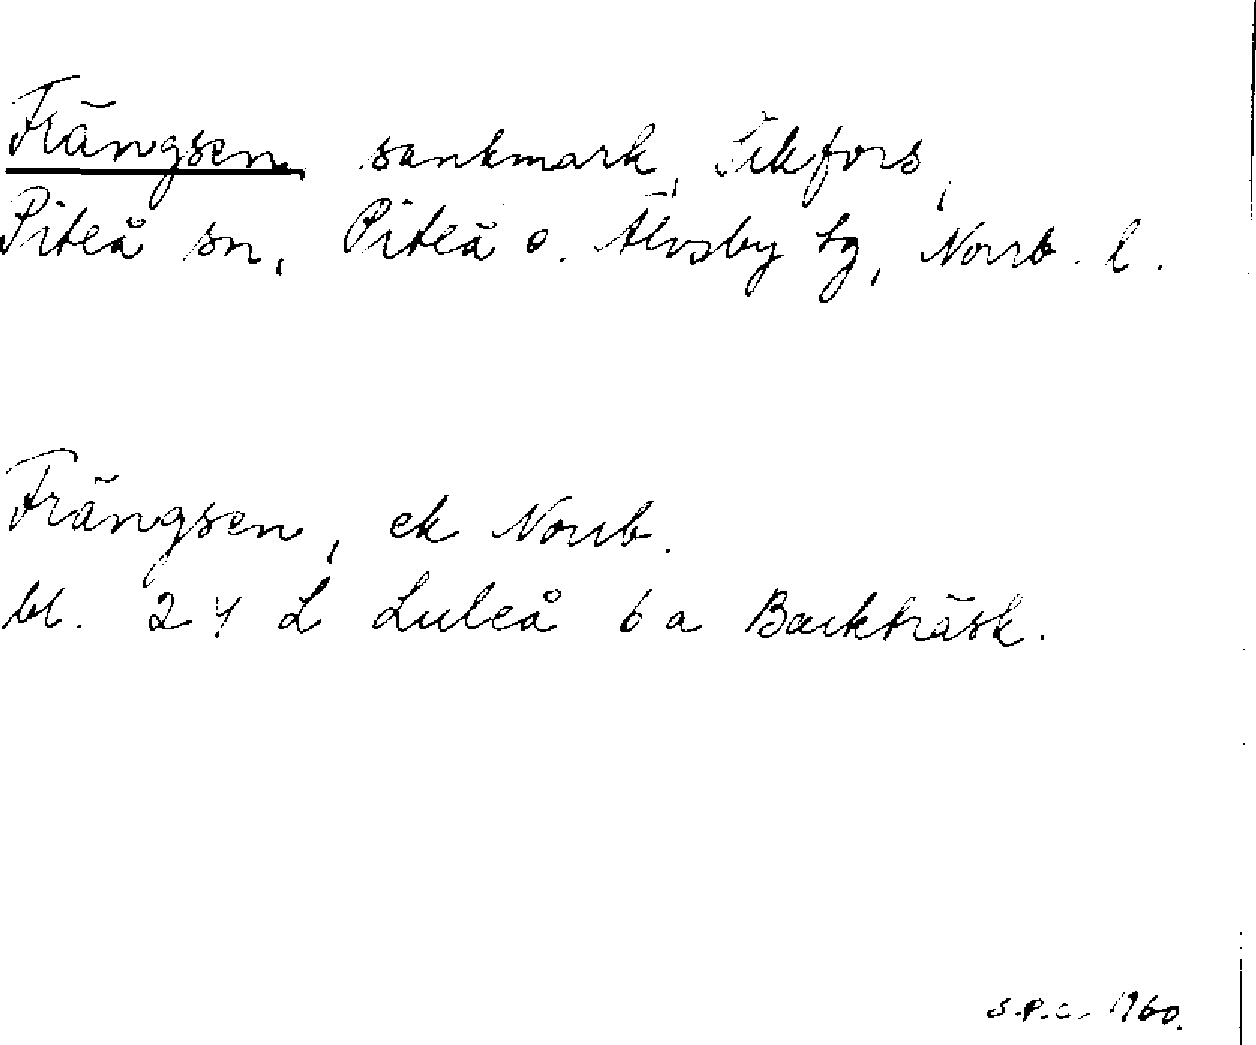 Frängsen, sankmark, Sikfors,
Piteå sn, Piteå o. Älvsby tg, Norrb. l.
Frängsen, ek Norrb.
bl. 24 L Luleå 6 a Backträsk.
S.P.C. 1960.